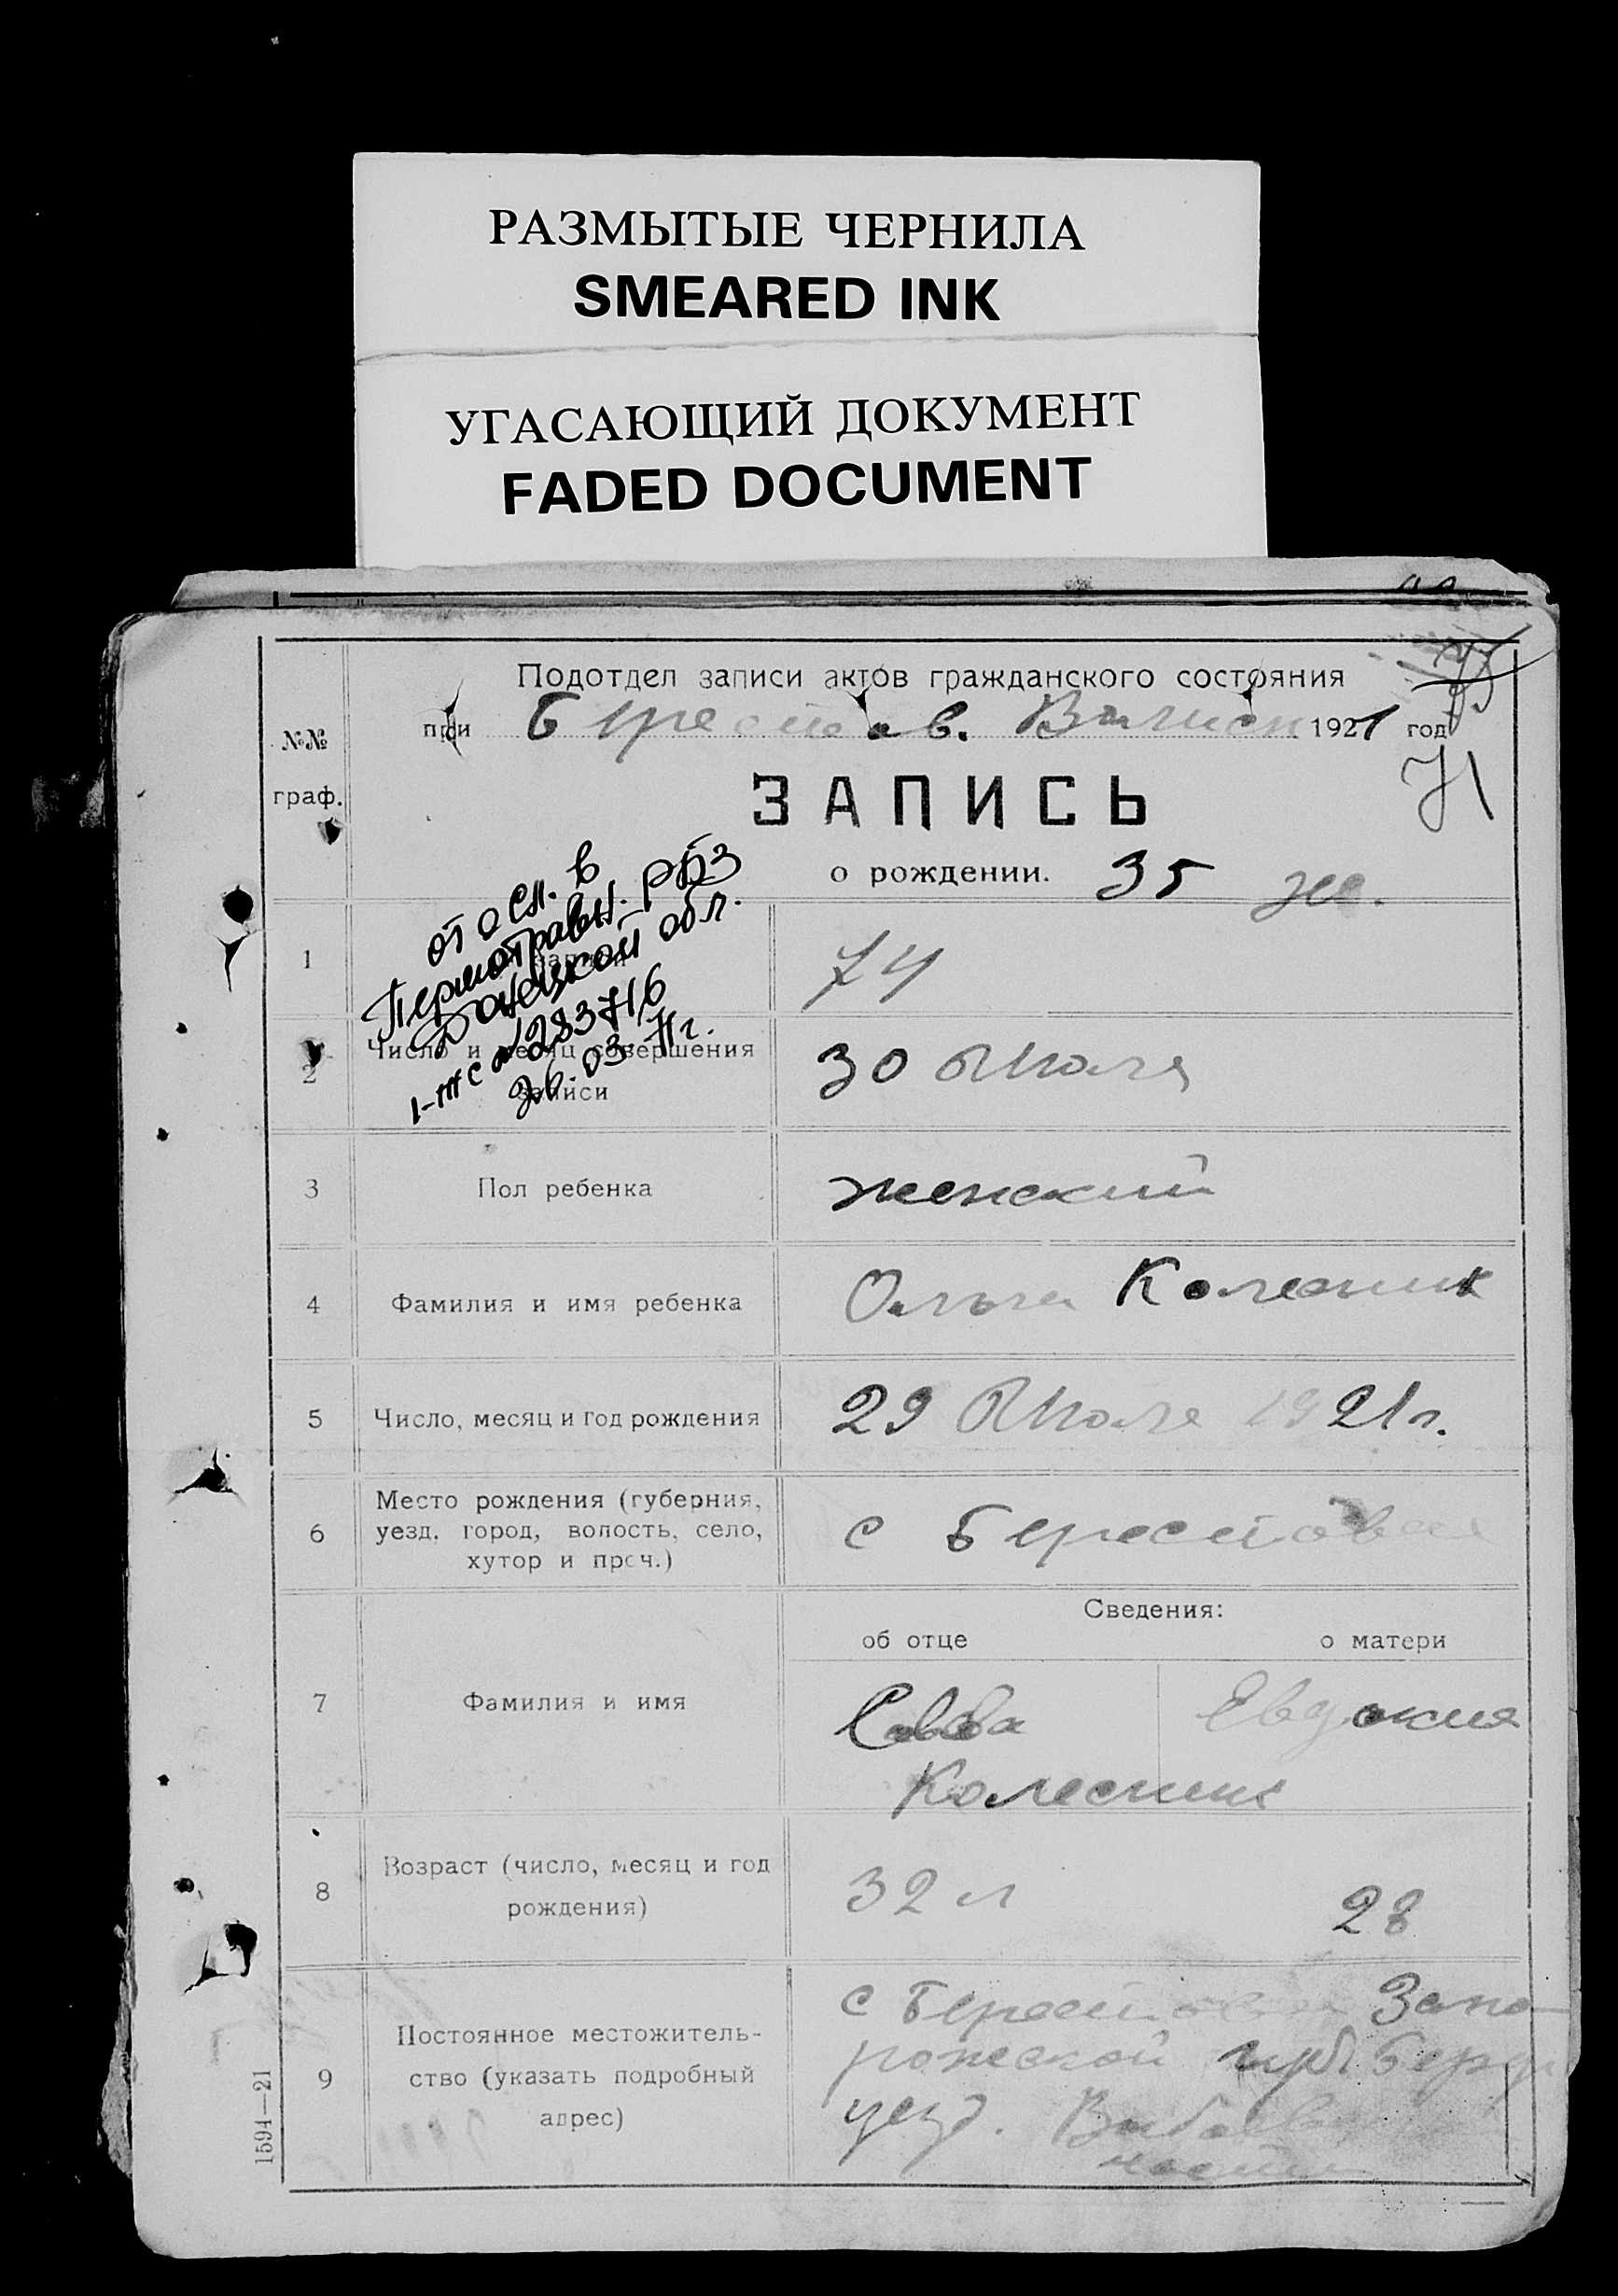 РАЗМЫТЫЕ ЧЕРНИЛА
SMEARED INK
УГАСАЮЩИЙ ДОКУМЕНТ
FADED DOCUMENT
Подотдел записи актов гражданского состояния
при Берестов. 1921 год
№№ граф.
71
ЗАПИСЬ
о рождении. 35 ж.
от осн. в
обл.
Донецкой
283716
26.03.71г.
1 74
2 Число и месяц совершения записи 30 Июля
3 Пол ребенка женский
4 Фамилия и имя ребенка Ольга Колесник
5 Число, месяц и год рождения 29 Июля 1921 г.
6 Место рождения (губерния,
уезд, город, волость, село,
хутор и проч.)
с Берестовое
Сведения:
об отце о матери
7 Фамилия и имя Савва Евдокия
Колесник
8 Возраст (число, месяц и год
рождения)
32 л 28
9 Постоянное местожитель-
ство (указать подробный
адрес)
с Берестовое Запо-
рожской губ Бердя
уезд.
1594—21